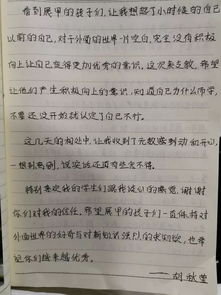 看到展甲的孩子们，让我想起了小时候的自己
以前的自己，对于外面的世界一片空白，完全没有积极
向上让自己变得更加优秀的意识，这次来支教，希望
让他们产生积极向上的意识，知道自己为什么而学，
不要还没开始就认定了自己不行。
这几天的相处中，让我收到了无数感动和开心，
一想到离别，说实话还真有些舍不得。
特别喜欢我的学生们跟我谈心的感觉，谢谢
你们对我的信任。希望展甲的孩子们一直保持对
外面世界的好奇与对新知识强烈的求知欲，也希
望你们越来越优秀。
——胡